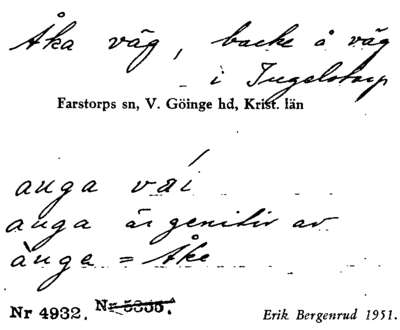 Åka väg, backe å väg
i Ingelstorp
Farstorps sn, V. Göinge hd, Krist. län
auga väi
auga är genitiv av
àuge = Åke
Nr 4932. Nr 5355.
Erik Bergenrud 1951.